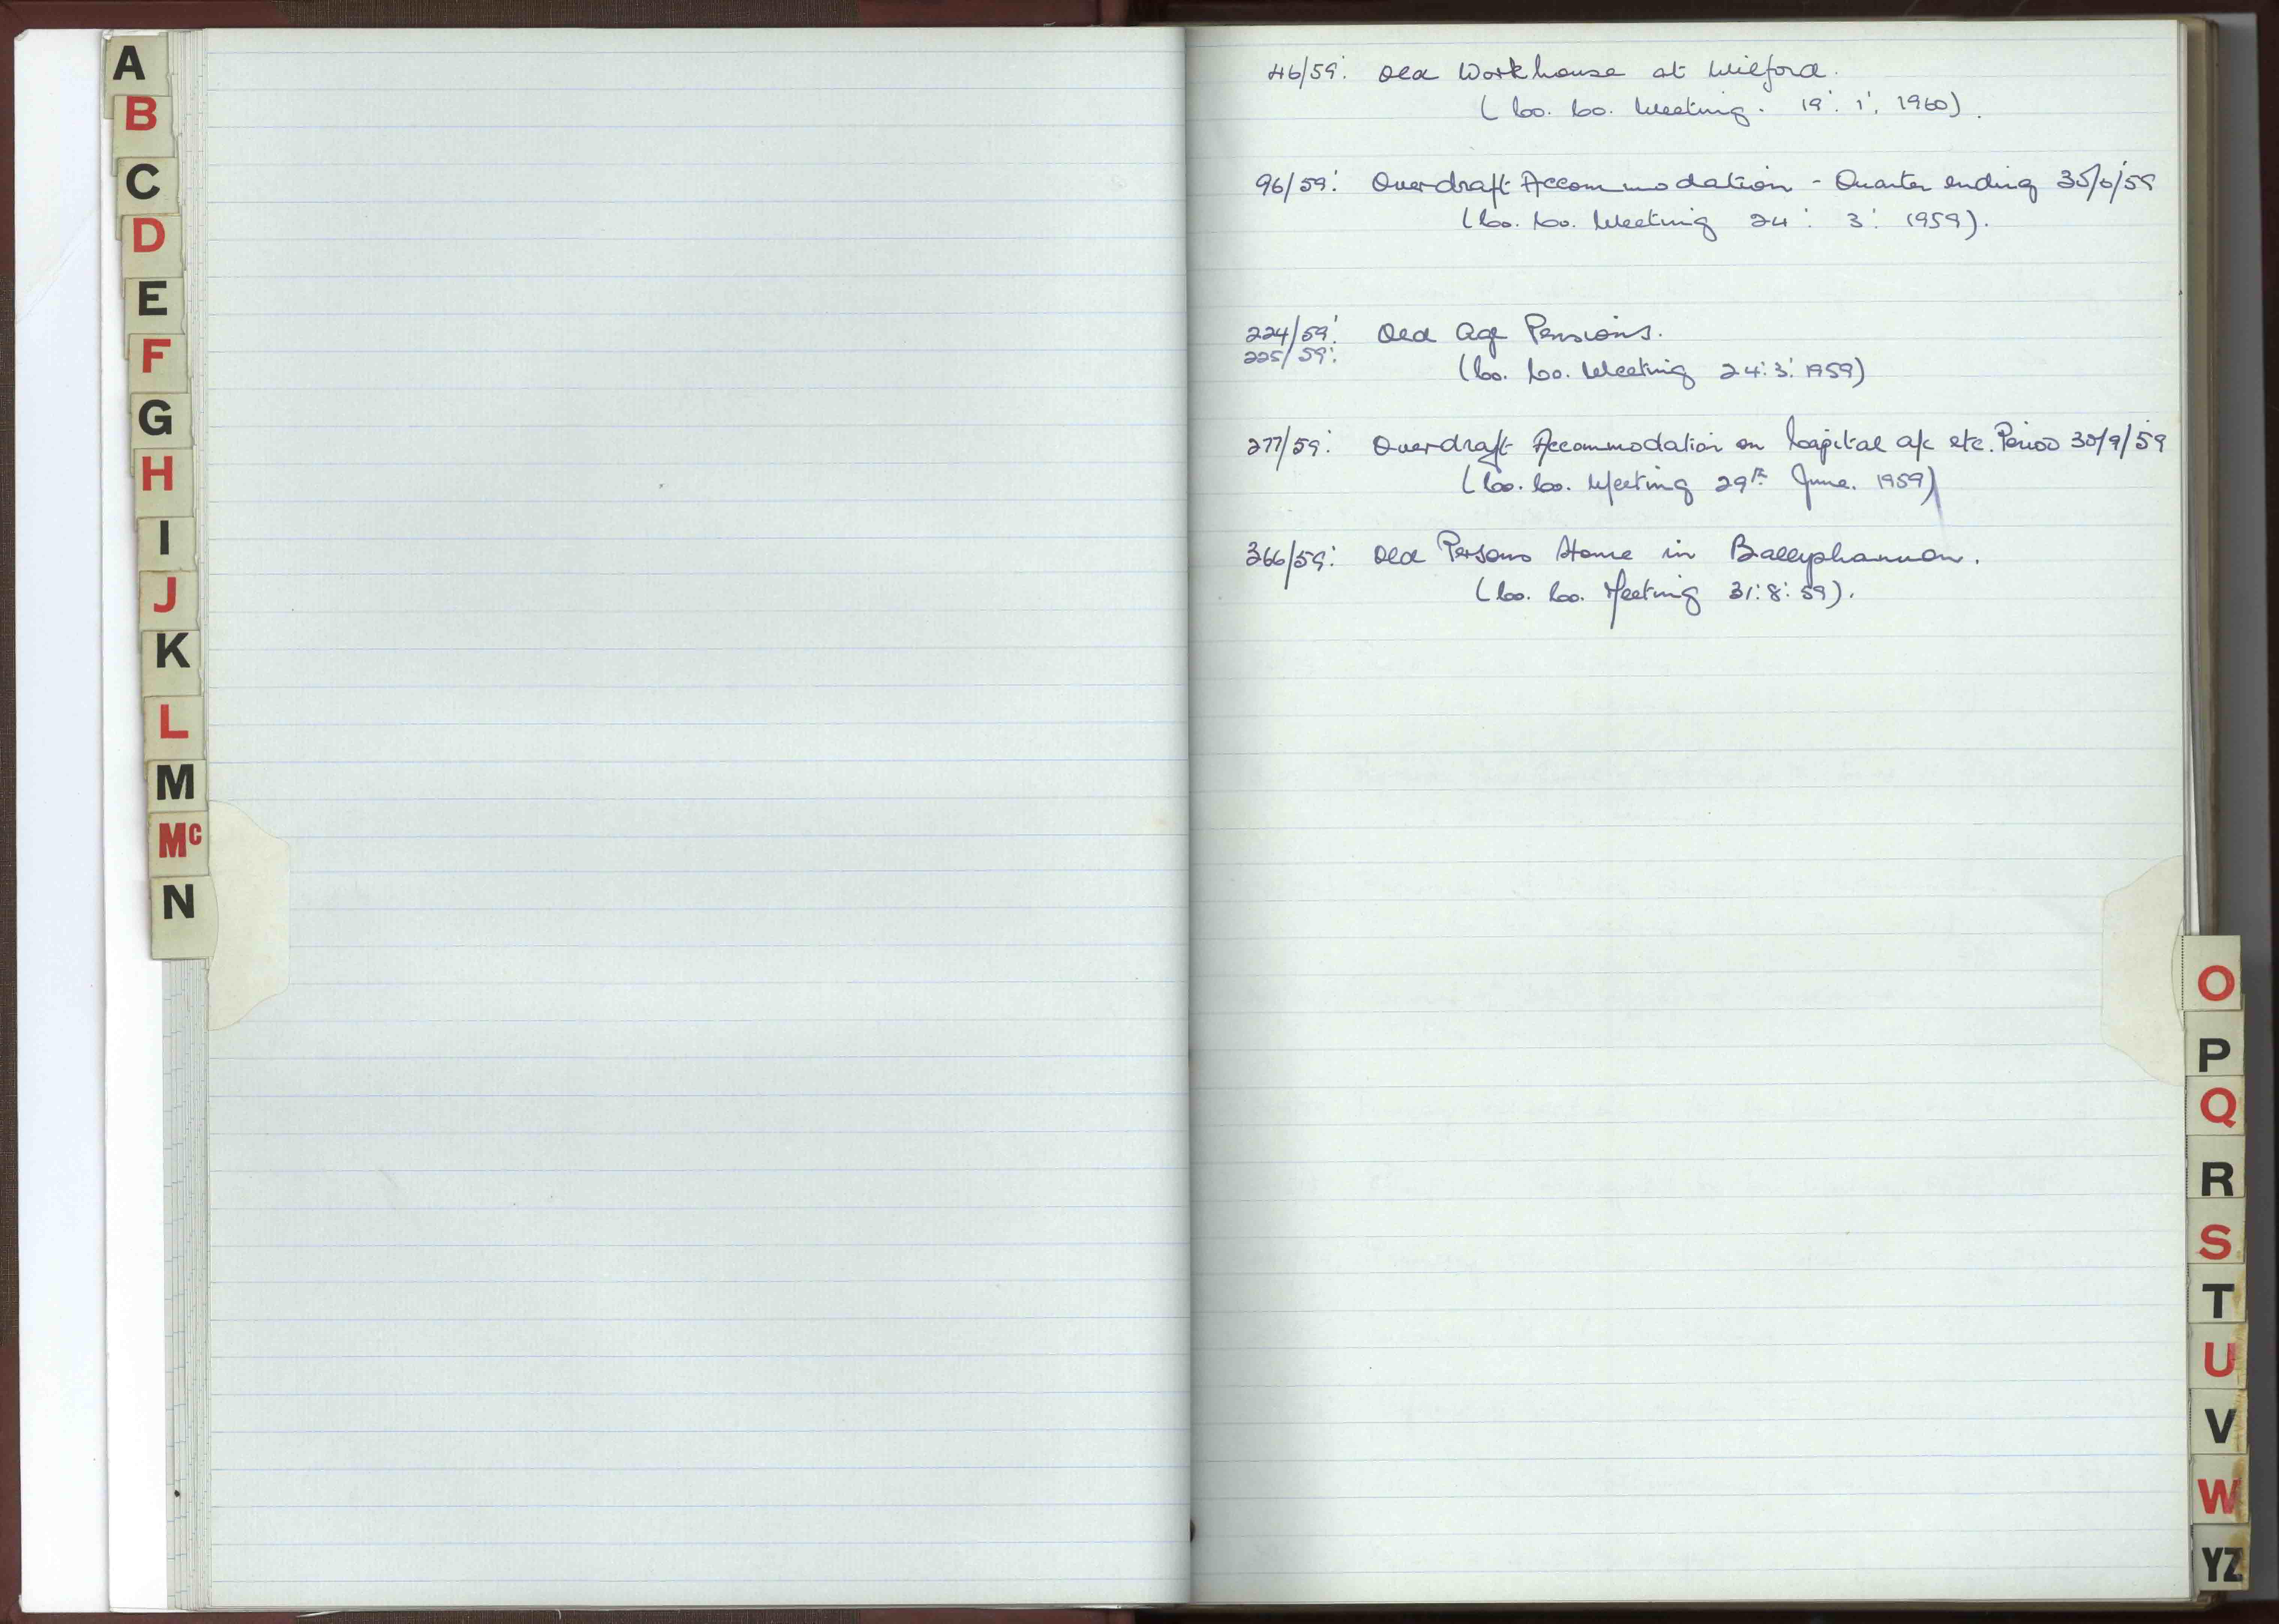 A
B
C
D
E
F
G
H
I
J
K
L
M
Mc
N
46/59: Old Workhouse at Milford.
(Co. Co. Meeting. 19: 1: 1960).
96/59: Overdraft Accommodation - Quarter ending 30/6/59
(Co. Co. Meeting 24: 3: 1959).
224/59: Old Age Pensions.
225/59:
(Co. Co. Meeting 24:3:1959)
277/59: Overdraft Accommodation on Capital a/c etc. Period 30/9/59
(Co. Co. Meeting 29th June. 1959)
366/59: Old Persons Home in Ballyshannon.
(Co. Co. Meeting 31:8:59).
O
P
Q
R
S
T
U
V
W
YZ